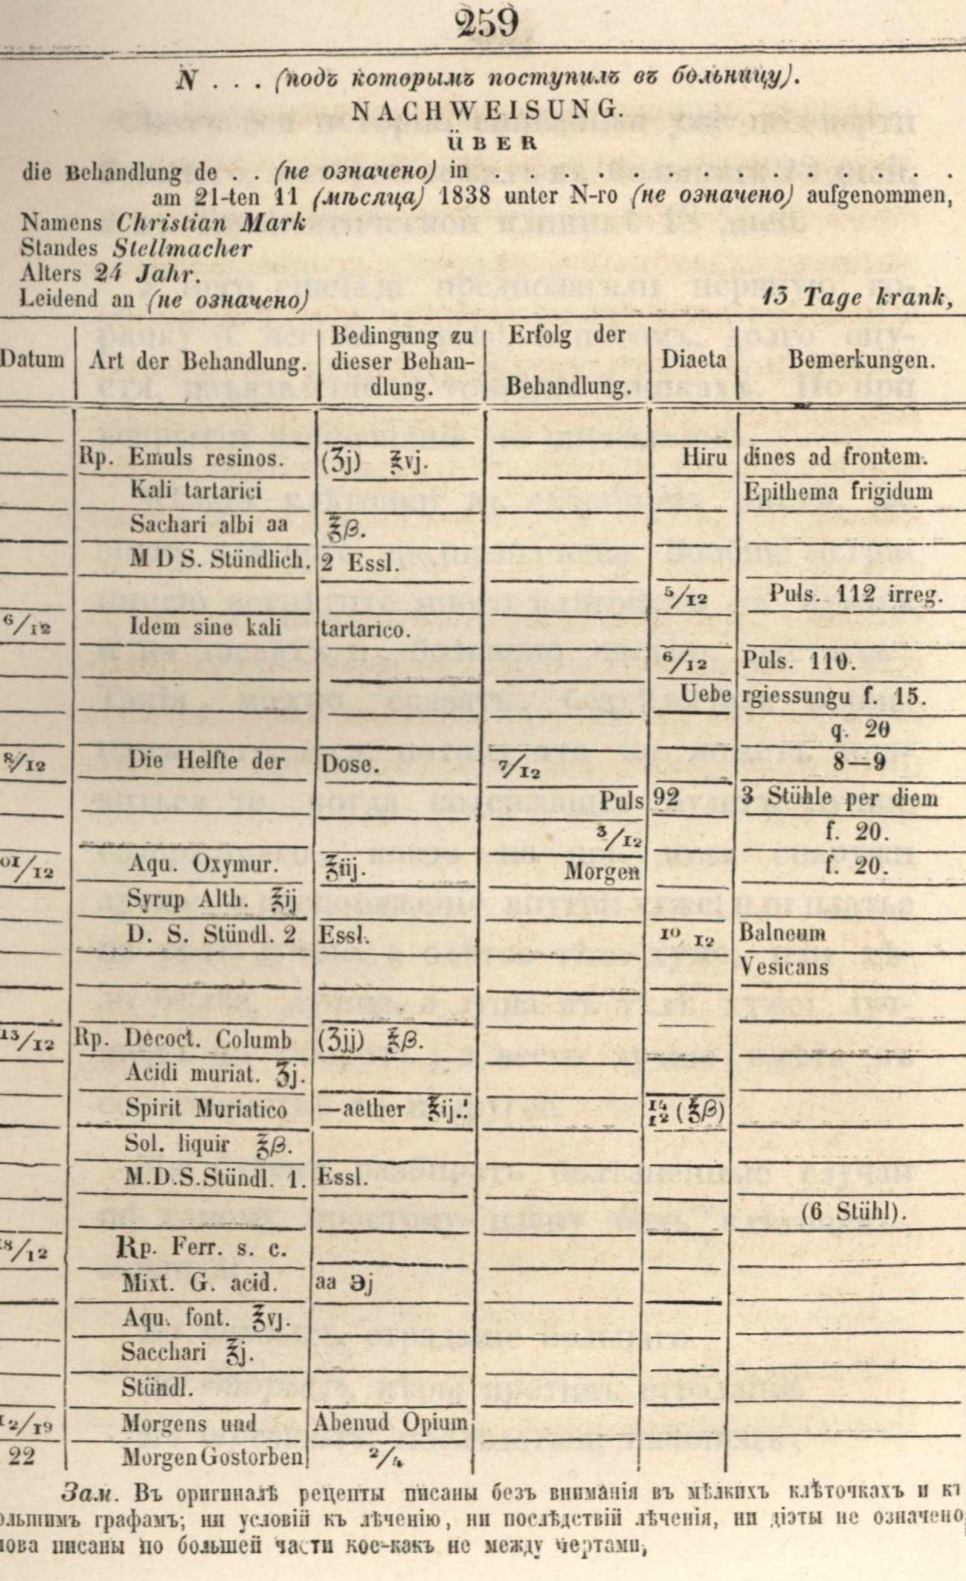 259
N . . . (подъ которымъ поступилъ въ больницу).
NACHWEISUNG.
ÜBER
die Behandlung de . . (не означено) in . . . . . . . . . . . . . .
am 21-ten 11 (мѣсяца) 1838 unter N-ro (не означено) aufgenommen,
Namens Christian Mark
Standes Stellmacher
Alters 24 Jahr.
Leidend an (не означено) 13 Tage krank,
Datum Art der Behandlung. Bedingung zu dieser Behan- dlung. Erfolg der Behandlung. Diaeta Bemerkungen.
Rp. Emuls resinos. (Ʒj) ℥vj. Hiru dines ad frontem.
Kali tartarici Epithema frigidum
Sachari albi aa ℥β.
M D S. Stündlich. 2 Essl.
5/12 Puls. 112 irreg.
6/12 Idem sine kali tartarico.
6/12 Puls. 110.
Uebe rgiessungu f. 15.
q. 20
8/12 Die Helfte der Dose. 7/12 8—9
Puls 92 3 Stühle per diem
3/12 f. 20.
01/12 Aqu. Oxymur. ℥iij. Morgen f. 20.
Syrup Alth. ℥ij
D. S. Stündl. 2 Essl. 10 12 Balneum
Vesicans
13/12 Rp. Decoct. Columb (Ʒjj) ℥β.
Acidi muriat. Ʒj.
Spirit Muriatico —aether ℥ij.: 14/12 (℥β)
Sol. liquir ℥β.
M.D.S.Stündl. 1. Essl.
(6 Stühl).
18/12 Rp. Ferr. s. c.
Mixt. G. acid. aa Эj
Aqu. font. ℥vj.
Sacchari ℥j.
Stündl.
12/19 Morgens und Abenud Opium
22 Morgen Gostorben 2/4
Зам. Въ оригиналѣ рецепты писаны безъ вниманія въ мѣлкихъ клѣточкахъ и
графамъ; ни условій къ лѣченію, ни послѣдствій лѣченія, ни діэты не означено
писаны по большей части кое-какъ не между чертами,